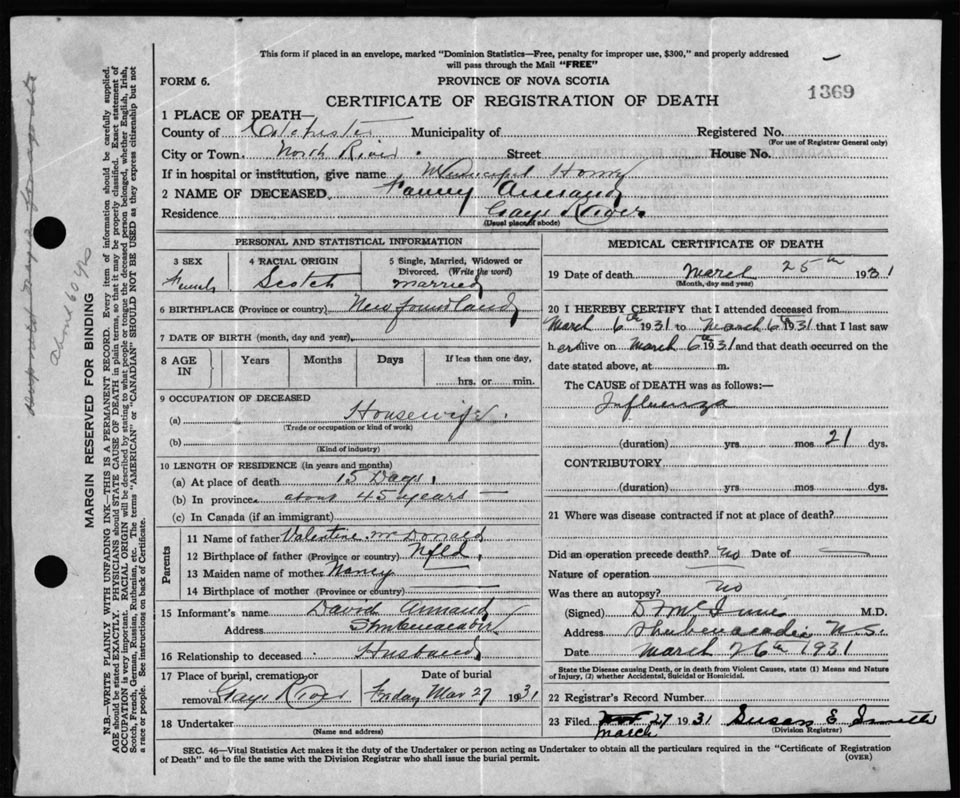 This form if placed in an envelope, marked "Dominion Statistics—Free, penalty for improper use, $300," and properly addressed
will pass through the Mail "FREE"
FORM 6.
PROVINCE OF NOVA SCOTIA
1369
CERTIFICATE OF REGISTRATION OF DEATH
1 PLACE OF DEATH—
County of Colchester Municipality of Registered No.
(For use of Registrar General only)
City or Town North River. Street House No.
If in hospital or institution, give name Municipal Home
2 NAME OF DECEASED. Fanny
Residence Gays River
(Usual place of abode)
PERSONAL AND STATISTICAL INFORMATION
3 SEX 4 RACIAL ORIGIN 5 Single, Married, Widowed or Divorced. (Write the word)
Female Scotch Married
6 BIRTHPLACE (Province or country) Newfoundland
7 DATE OF BIRTH (month, day and year)
8 AGE IN Years Months Days If less than one day,
hrs. or min.
9 OCCUPATION OF DECEASED
(a) Housewife.
(Trade or occupation or kind of work)
(b)
(Kind of industry)
10 LENGTH OF RESIDENCE (in years and months)
(a) At place of death 15 Days
(b) In province about 45 years —
(c) In Canada (if an immigrant)
Parents
11 Name of father Valentine McDonald
12 Birthplace of father (Province or country) Nfld.
13 Maiden name of mother Nancy —
14 Birthplace of mother (Province or country) —
15 Informant's name David
Address Shubenacadie
16 Relationship to deceased Husband
17 Place of burial, cremation or removal Gays River
Date of burial Friday Mar 27 1931
18 Undertaker
(Name and address)
MEDICAL CERTIFICATE OF DEATH
19 Date of death March 25th 1931
(Month, day and year)
20 I HEREBY CERTIFY that I attended deceased from
March 6th 1931 to March 6th 1931 that I last saw
her alive on March 6th 1931 and that death occurred on the
date stated above, at m.
The CAUSE of DEATH was as follows:—
Influenza
(duration) yrs mos 21 dys.
CONTRIBUTORY
(duration) yrs mos dys.
21 Where was disease contracted if not at place of death?
Did an operation precede death? no Date of —
Nature of operation —
Was there an autopsy? no
(Signed) M.D.
Address Shubenacadie N.S.
Date March 26th 1931
State the Disease causing Death, or in death from Violent Causes, state (1) Means and Nature
of Injury, (2) whether Accidental, Suicidal or Homicidal.
22 Registrar's Record Number
23 Filed March 27 1931 Susan E. Smith
(Division Registrar)
SEC. 46—Vital Statistics Act makes it the duty of the Undertaker or person acting as Undertaker to obtain all the particulars required in the "Certificate of Registration
of Death" and to file the same with the Division Registrar who shall issue the burial permit.
(OVER)
MARGIN RESERVED FOR BINDING
about 60 yrs
N.B.—WRITE PLAINLY WITH UNFADING INK—THIS IS A PERMANENT RECORD. Every item of information should be carefully supplied.
AGE should be stated EXACTLY. PHYSICIANS should STATE CAUSE OF DEATH in plain terms, so that it may be properly classified. Exact statement of
OCCUPATION is very important. RACIAL ORIGIN will be described by stating to what people or tongue the deceased person belonged, whether English, Irish,
Scotch, French, German, Russian, Ruthenian, etc. The terms "AMERICAN" or "CANADIAN" SHOULD NOT BE USED as they express citizenship but not
a race or people. See instructions on back of Certificate.